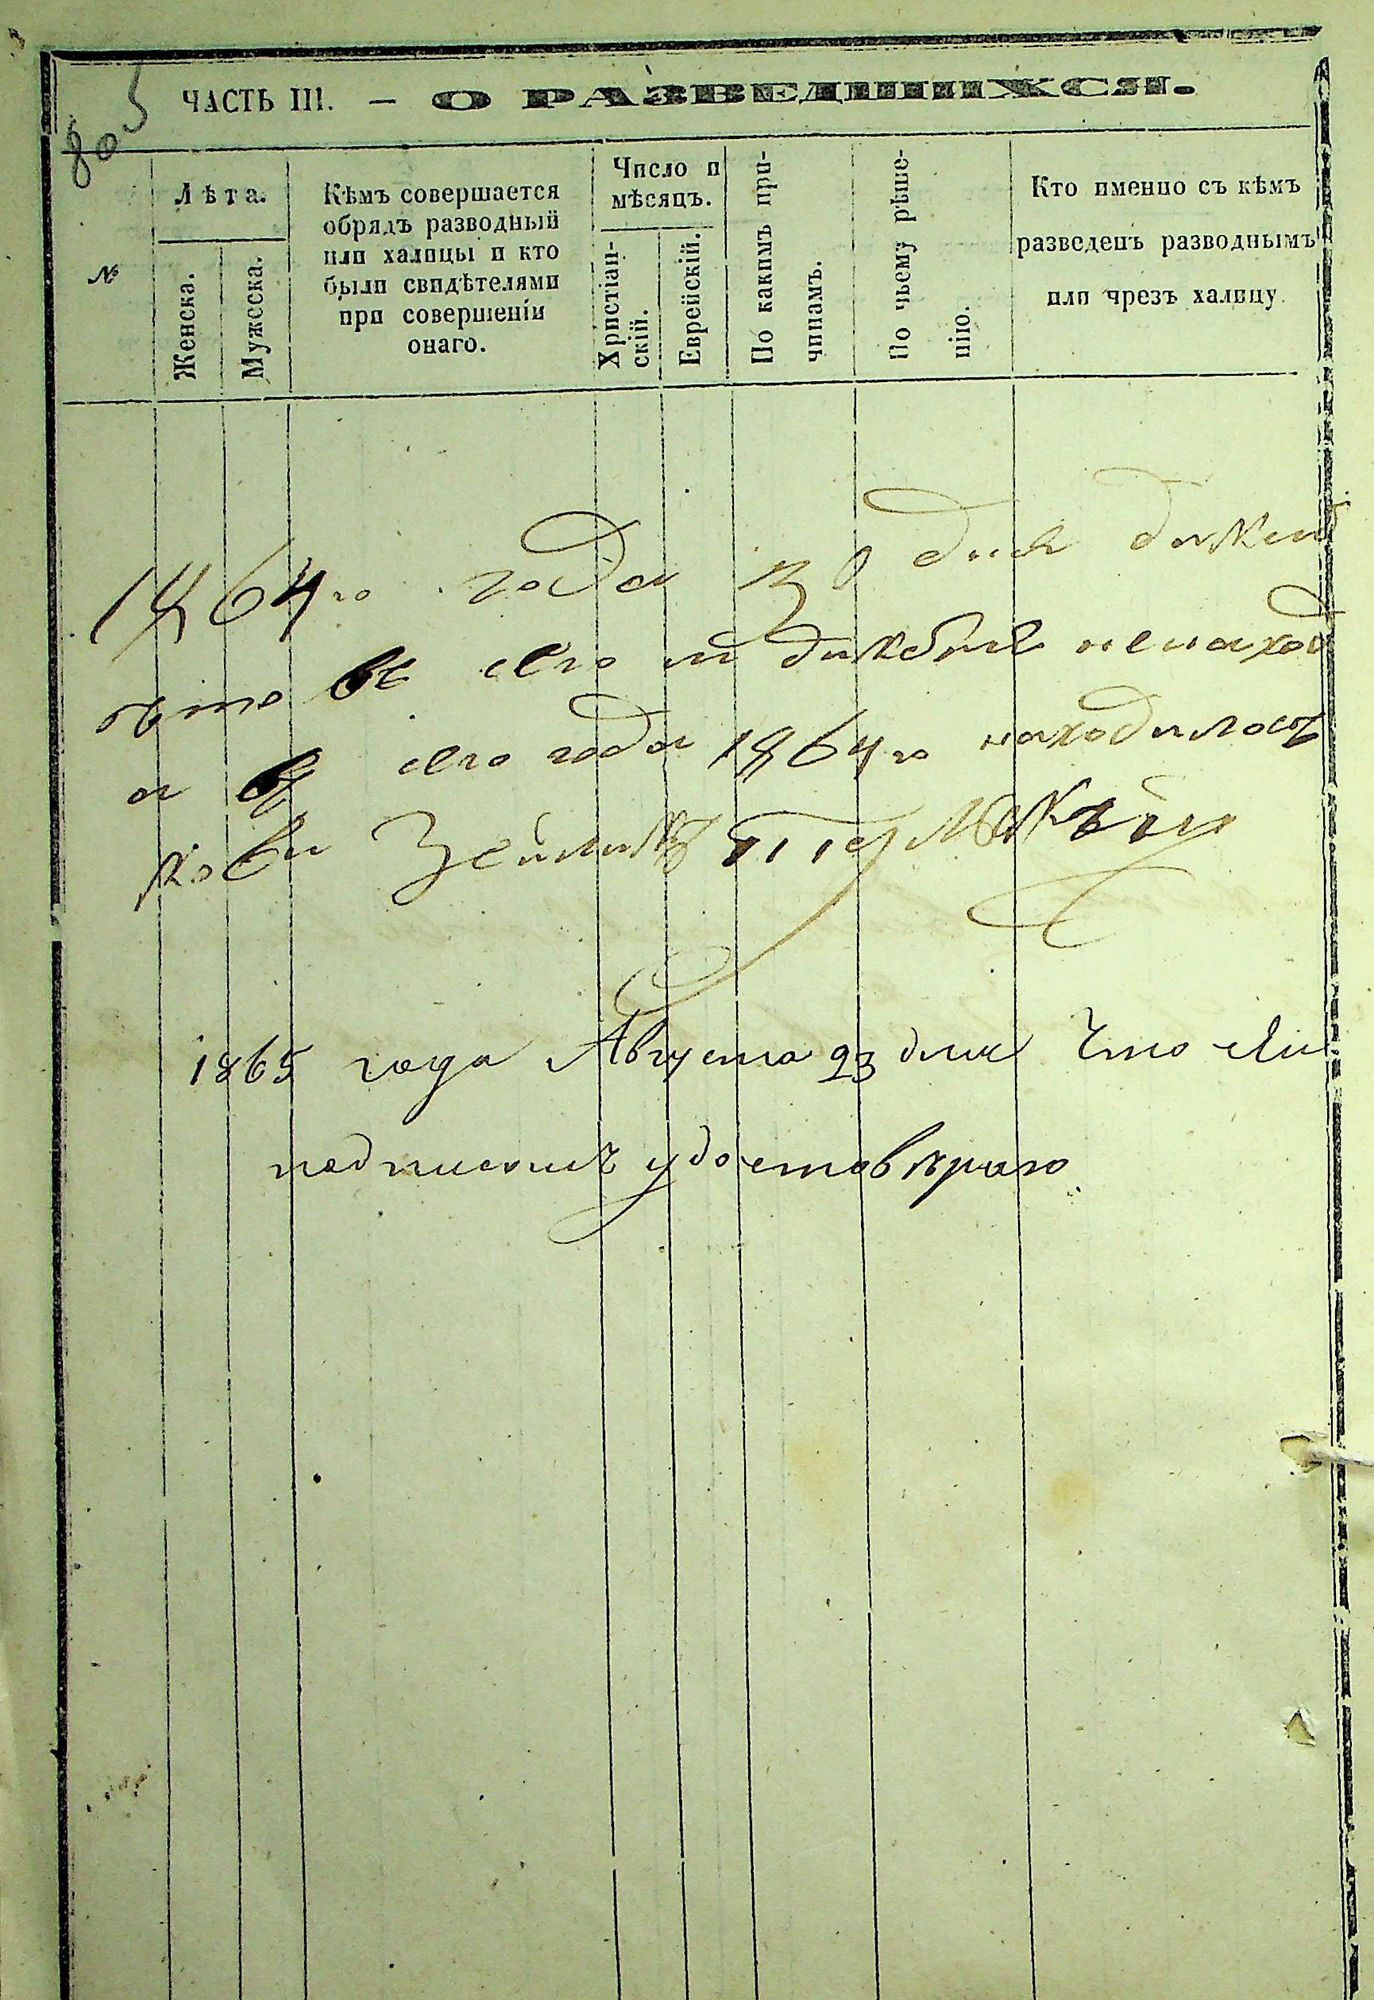 805
ЧАСТЬ III. — О РАЗВЕДШИХСЯ.
№
Лѣта.
Женска.
Мужеска.
Кѣмъ совершается
обрядъ разводный
или халицы и кто
были свидѣтелями
при совершеніи
онаго.
Число и
мѣсяцъ.
Христіан-
скій.
Еврейскій.
По какимъ при-
чинамъ.
По чьему рѣше-
нію.
Кто именно съ кѣмъ
разведенъ разводнымъ
или чрезъ халицу
1864го года 30 дня
сего ненаход
а въ сего года 1864го находилось
Зейликъ
1865 года Августа 23 дня Что
подписомъ удостовѣраю